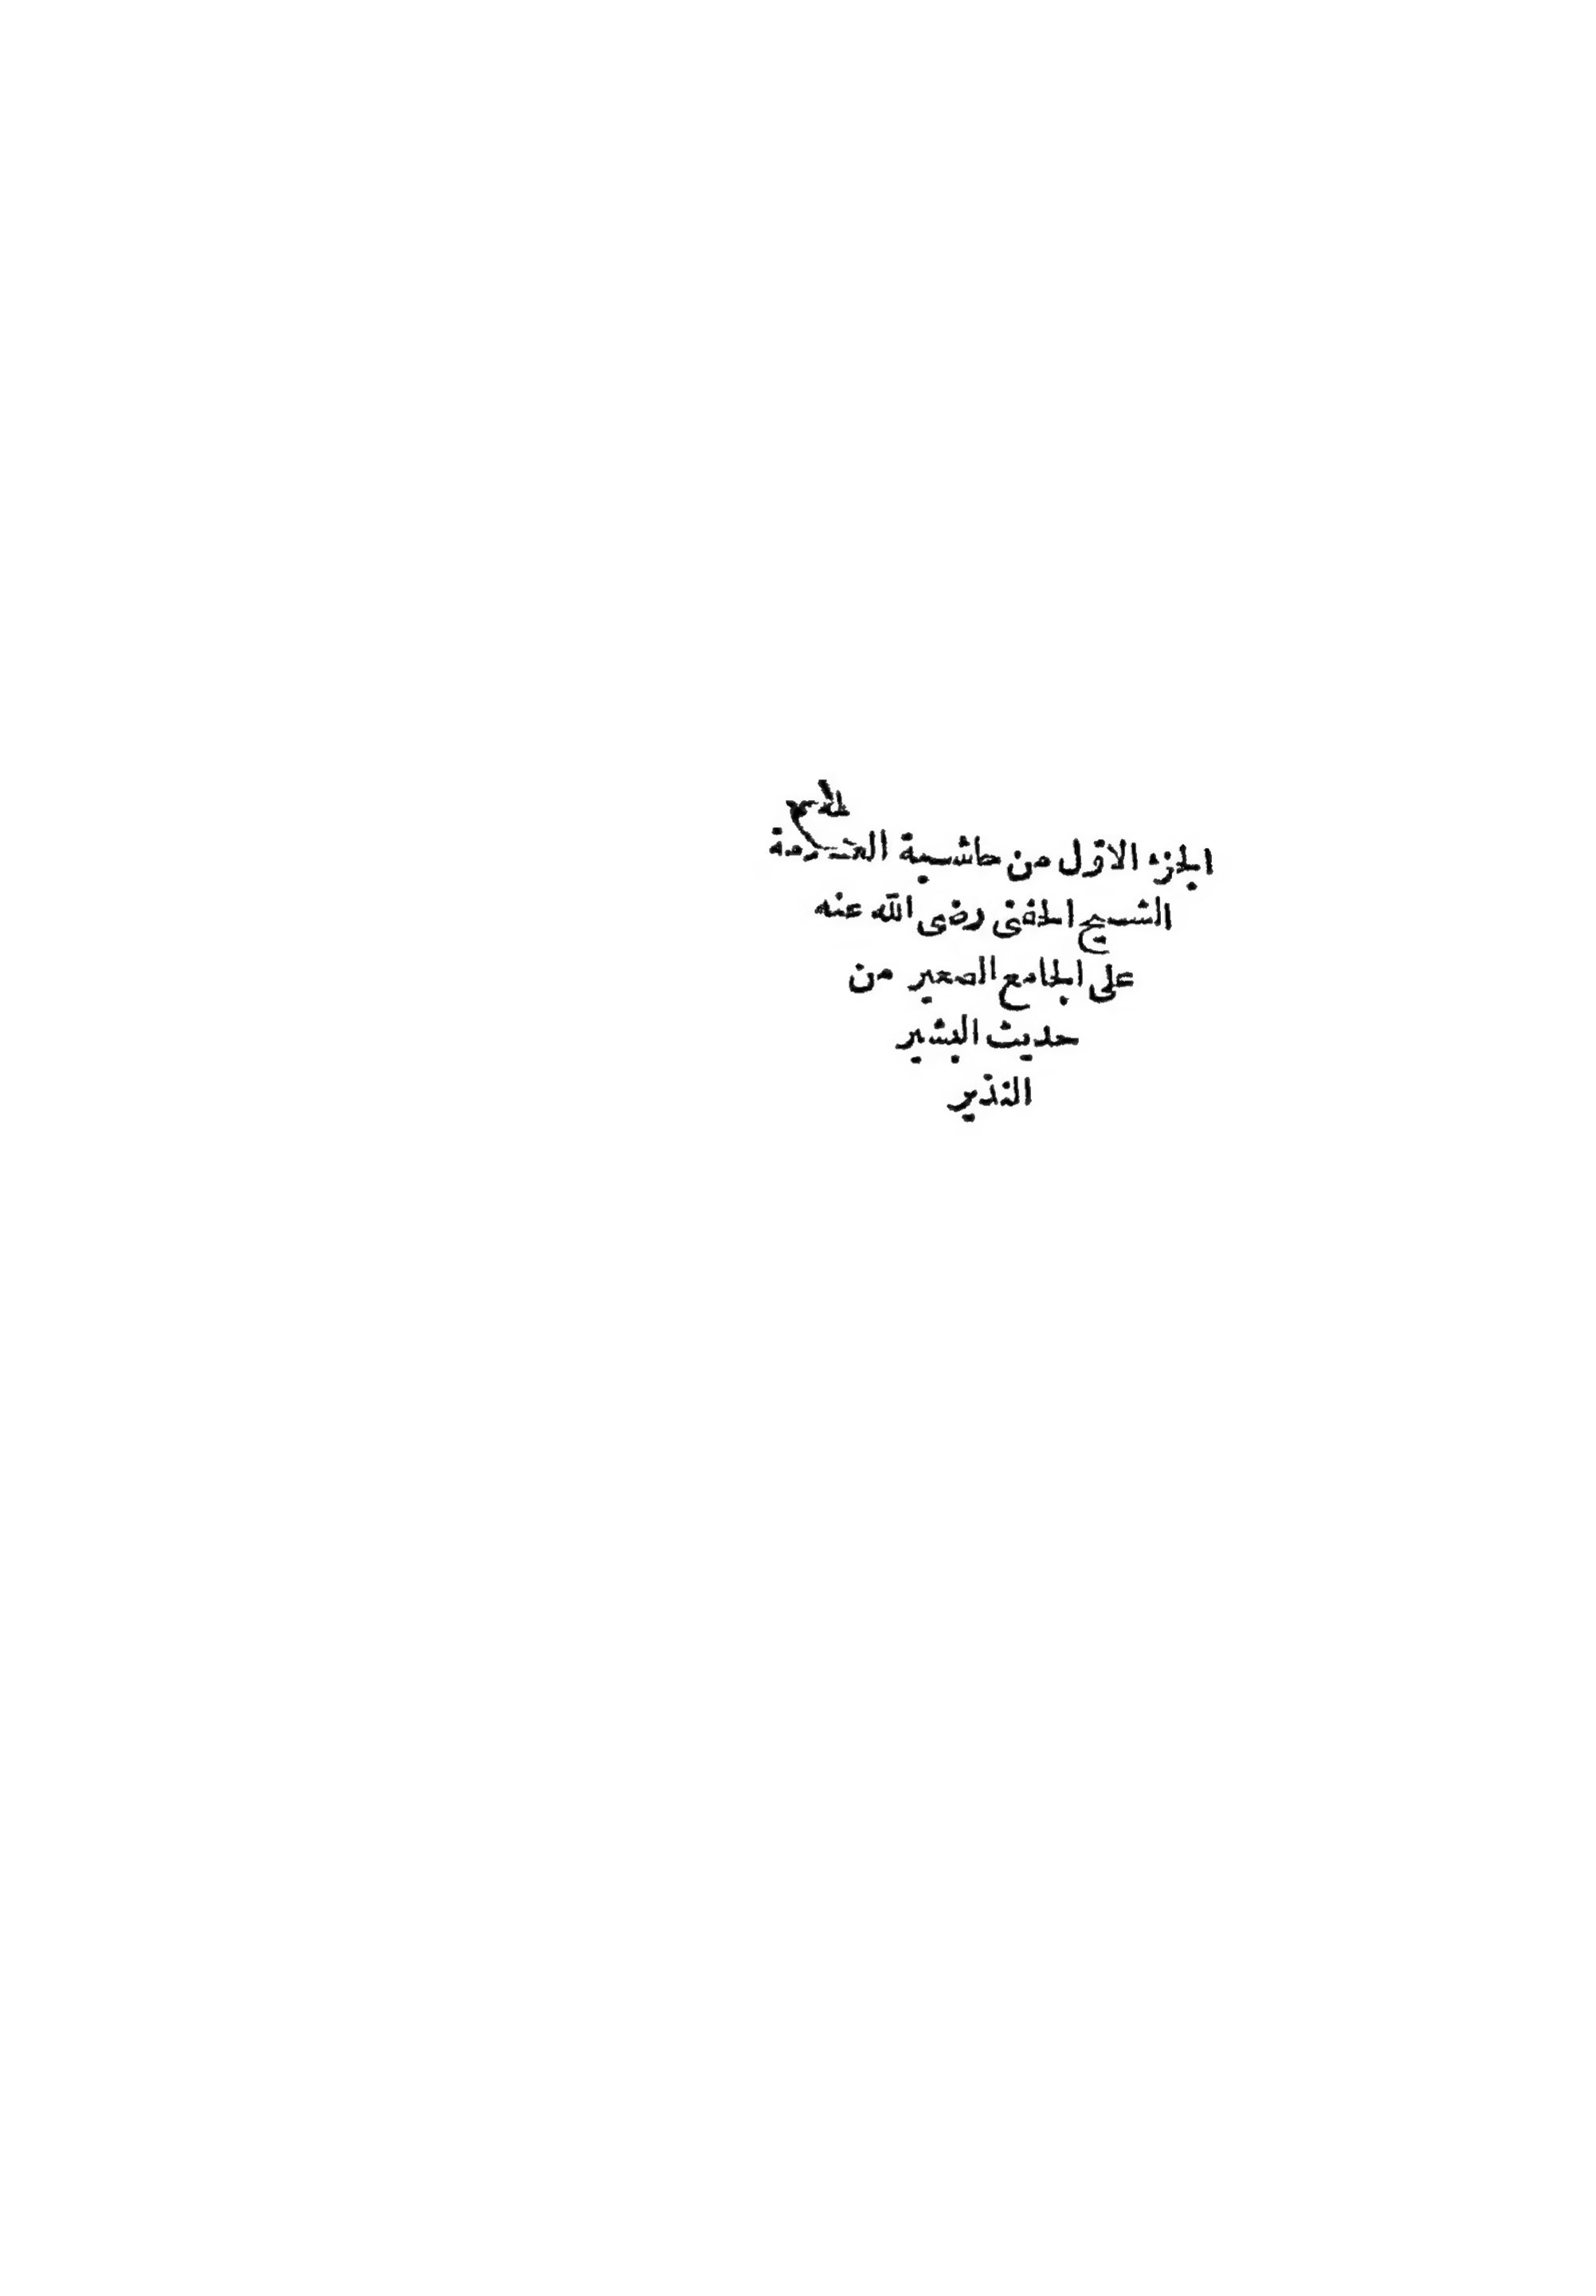 الجزء الاوّل من حاشية
الشيخ الحفنى رضى الله عنه
على الجامع الصغير من
حديث البشير
النذير